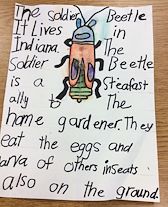 The Soldier Beetle
It Lives in
Indiana. The
Soldier Beetle
is a Steafast
ally to The
home gardener. They
eat the eggs and
larva of others inseats
also on the ground.